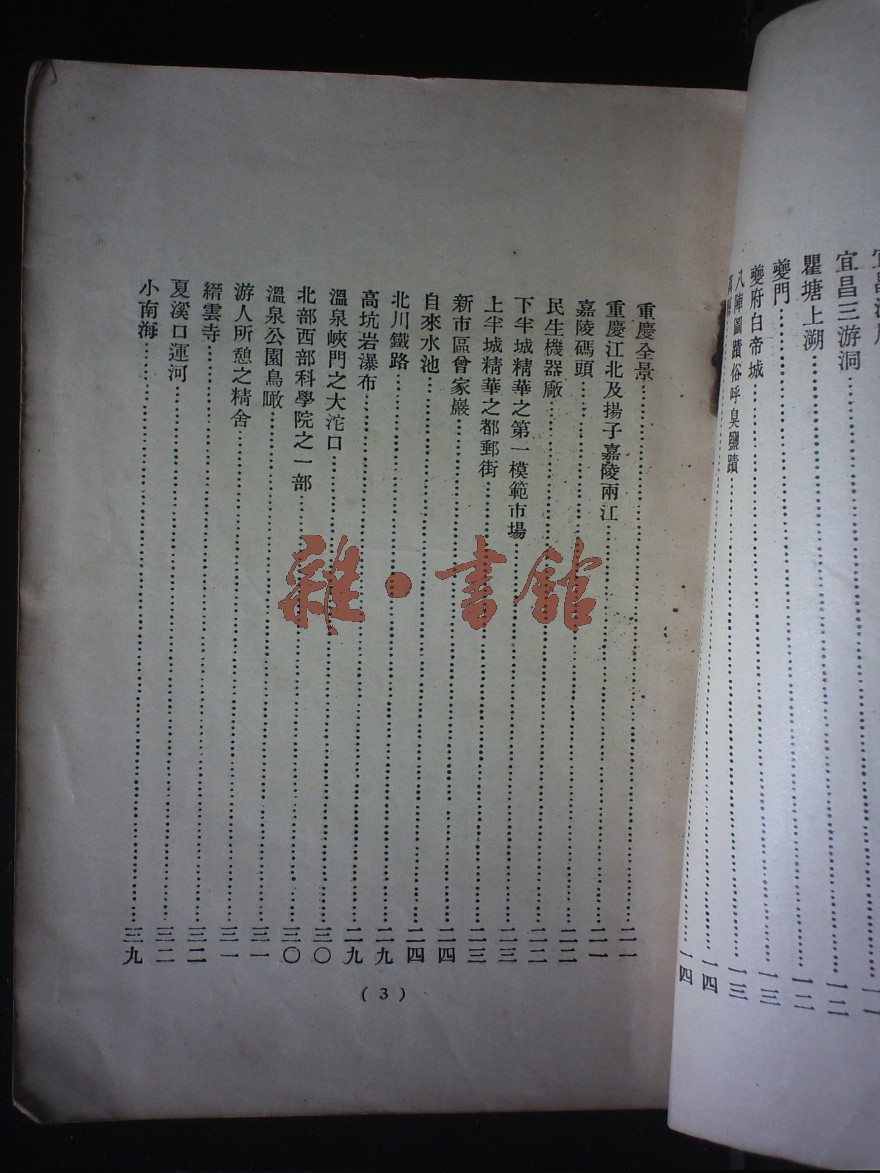 宜昌三游洞……一二
瞿塘上溯……一二
夔門……一三
夔府白帝城……一三
八陣圖蹟俗呼臭鹽蹟……一四
一四
重慶全景……二一
重慶江北及揚子嘉陵兩江……二一
嘉陵碼頭……二二
民生機器廠……二二
下半城精華之第一模範市場……二三
上半城精華之都郵街……二三
新市區曾家巖……二四
自來水池……二四
北川鐵路……二九
高坑岩瀑布……二九
溫泉峽門之大沱口……三〇
北部西部科學院之一部……三〇
溫泉公園鳥瞰……三一
游人所憩之精舍……三一
縉雲寺……三二
夏溪口運河……三二
小南海……三九
(3)
雜·書館